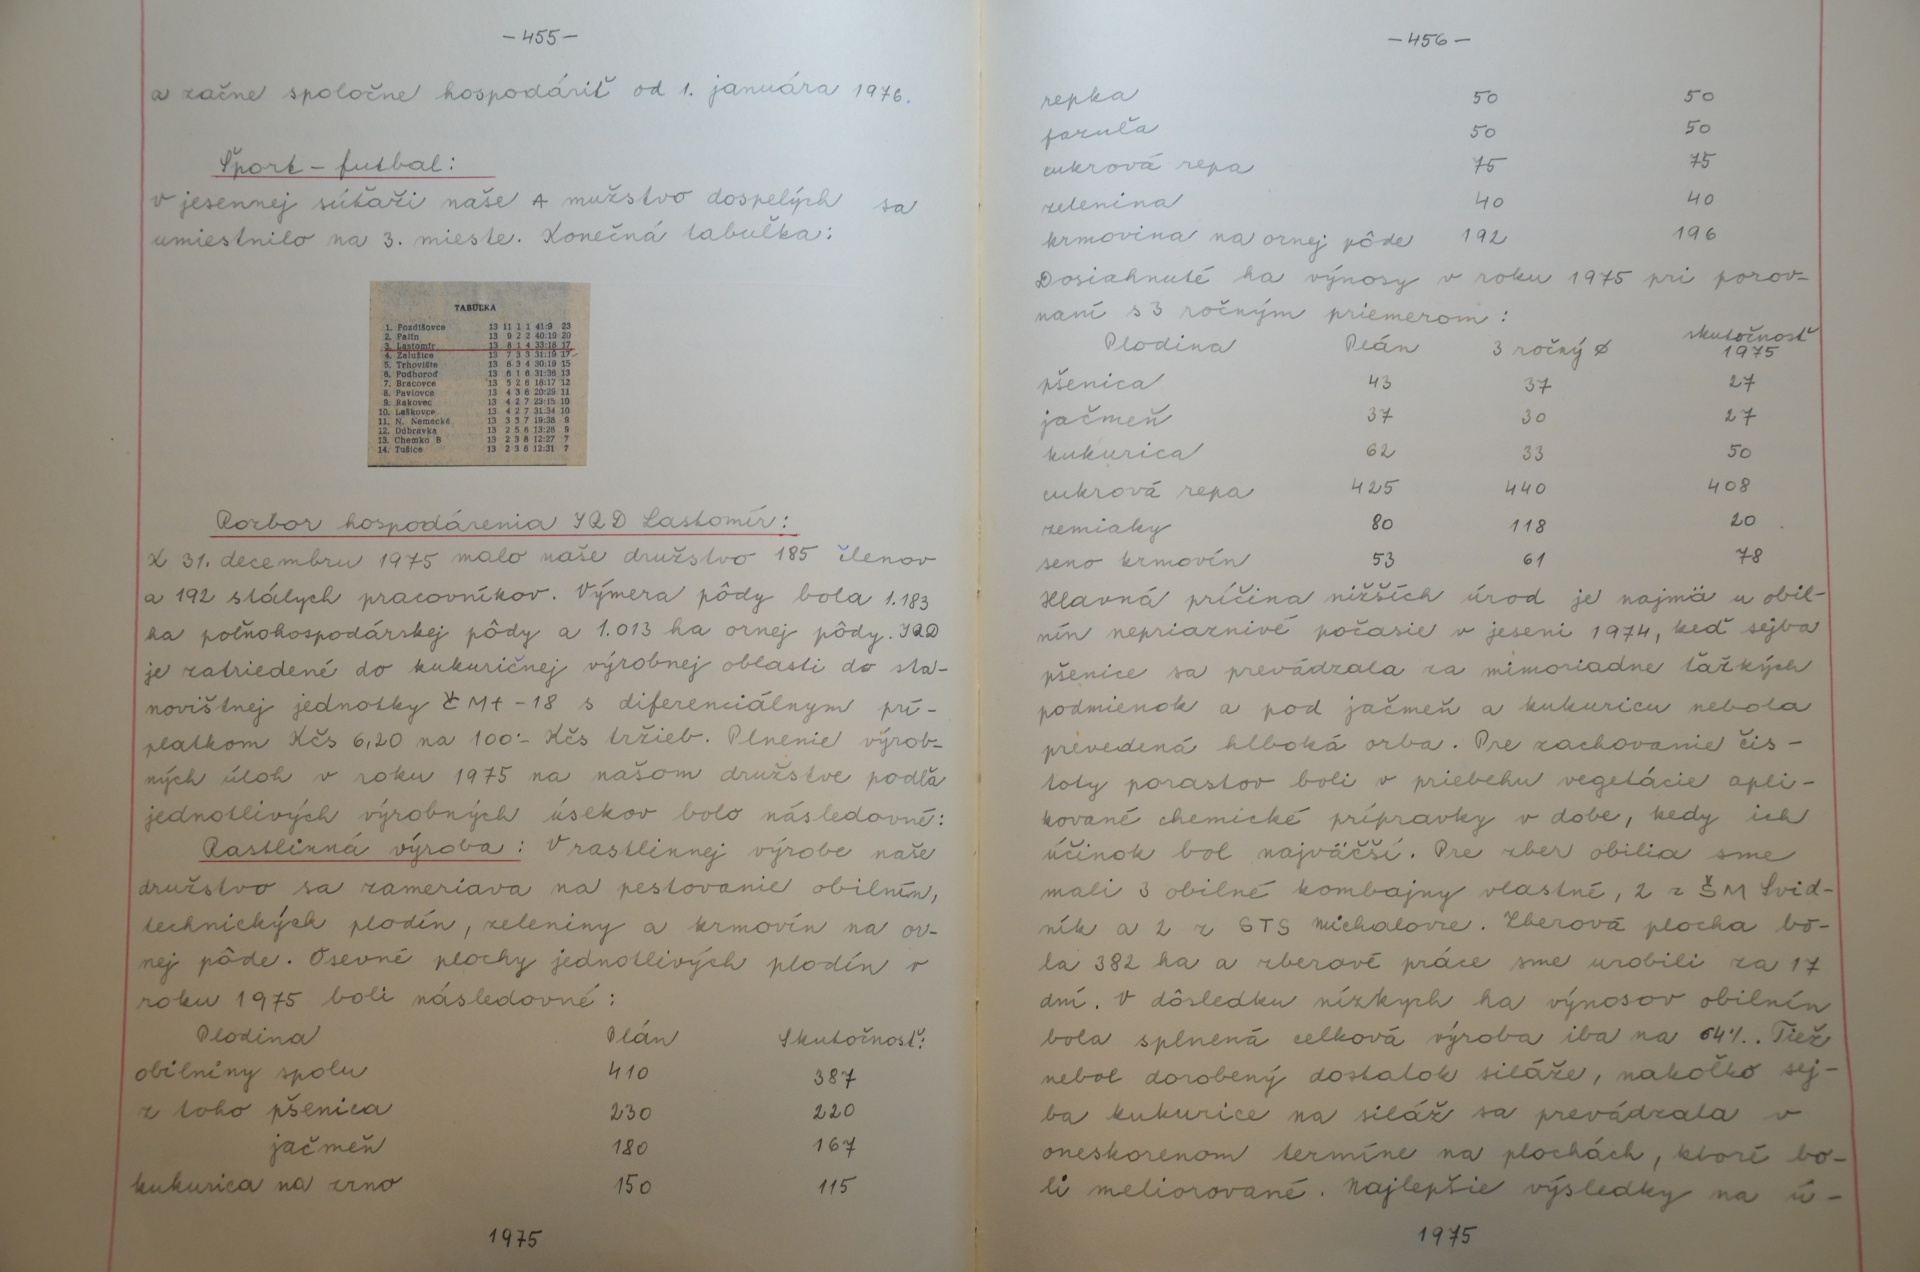 -455-
a začne spoločne hospodáriť od 1. januára 1976.
Šport - futbal:
v jesennej súťaži naše A mužstvo dospelých sa
umiestnilo na 3. mieste. Konečná tabuľka:
TABUĽKA
1. Pozdišovce 13 11 1 1 41:9 23
2. Palín 13 9 2 2 40:19 20
3. Lastomír 13 8 1 4 33:18 17
4. Zalužice 13 7 3 3 31:19 17
5. Trhovište 13 6 3 4 30:19 15
6. Podhoroď 13 6 1 6 31:36 13
7. Bracovce 13 5 2 6 18:17 12
8. Pavlovce 13 4 3 6 20:29 11
9. Rakovec 13 4 2 7 23:15 10
10. Laškovce 13 4 2 7 31:34 10
11. N. Nemecké 13 3 3 7 19:38 9
12. Dúbravka 13 2 5 6 13:28 9
13. Chemko B 13 2 3 8 12:27 7
14. Tušice 13 2 3 8 12:31 7
Rozbor hospodárenia JRD Lastomír:
K 31. decembru 1975 malo naše družstvo 185 členov
a 192 stálych pracovníkov. Výmera pôdy bola 1.183
ha poľnohospodárskej pôdy a 1.013 ha ornej pôdy. JRD
je zatriedené do kukuričnej výrobnej oblasti do sta-
novištnej jednotky Č M+ -18 s diferenciálnym prí-
platkom Kčs 6,20 na 100'- Kčs tržieb. Plnenie výrob-
ných úloh v roku 1975 na našom družstve podľa
jednotlivých výrobných úsekov bolo následovné:
Rastlinná výroba: V rastlinnej výrobe naše
družstvo sa zameriava na pestovanie obilnín,
technických plodín, zeleniny a krmovín na or-
nej pôde. Osevné plochy jednotlivých plodín v
roku 1975 boli následovné:
Plodina Plán Skutočnosť:
obilniny spolu 410 387
z toho pšenica 230 220
jačmeň 180 167
kukurica na zrno 150 115
1975
-456-
repka 50 50
fazuľa 50 50
cukrová repa 75 75
zelenina 40 40
krmovina na ornej pôde 192 196
Dosiahnuté ha výnosy v roku 1975 pri porov-
naní s 3 ročným priemerom:
Plodina Plán 3 ročný ø skutočnosť 1975
pšenica 43 37 27
jačmeň 37 30 27
kukurica 62 33 50
cukrová repa 425 440 408
zemiaky 80 118 20
seno krmovín 53 61 78
Hlavná príčina nižších úrod je najmä u obil-
nín nepriaznivé počasie v jeseni 1974, keď sejba
pšenice sa prevádzala za mimoriadne ťažkých
podmienok a pod jačmeň a kukuricu nebola
prevedená hlboká orba. Pre zachovanie čis-
toty porastov boli v priebehu vegetácie apli-
kované chemické prípravky v dobe, kedy ich
účinok bol najväčší. Pre zber obilia sme
mali 3 obilné kombajny vlastné, 2 z ŠM Svid-
ník a 2 z STS Michalovce. Zberová plocha bo-
la 382 ha a zberové práce sme urobili za 17
dní. V dôsledku nízkych ha výnosov obilnín
bola splnená celková výroba iba na 64%. Tiež
nebol dorobený dostatok siláže, nakoľko sej-
ba kukurice na siláž sa prevádzala v
oneskorenom termíne na plochách, ktoré bo-
li meliorované. Najlepšie výsledky na ú-
1975